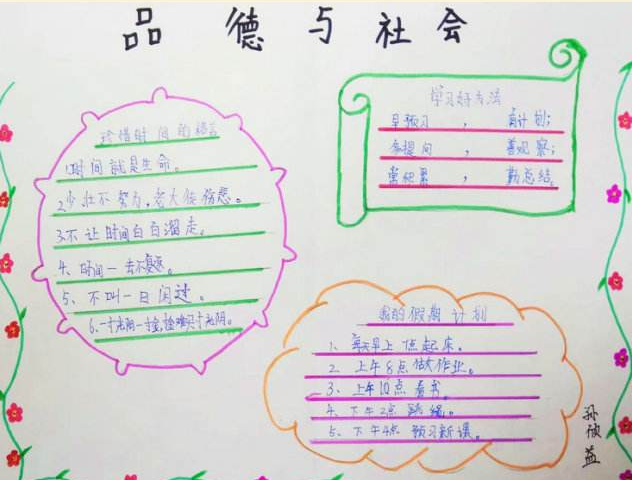 品德与社会
珍惜时间的格言
1.时间就是生命。
2.少壮不努力,老大徒伤悲。
3.不让时间白白溜走。
4、时间一去不复返。
5、不叫一日闲过。
6.一寸光阴一寸金,寸金难买寸光阴。
学习好方法
早预习 , 有计划;
多提问 , 善观察;
常积累 , 勤总结。
我的假期计划
1、每天早上 点起床。
2、上午8点做作业。
3、上午10点看书。
4、下午2点跳绳。
5、下午4点预习新课。
孙 益